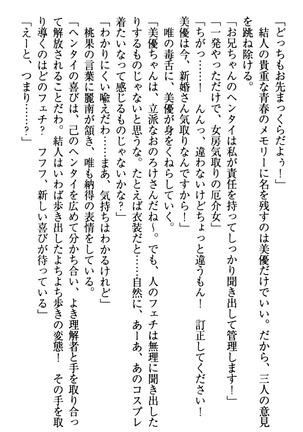 「どっちもお先まっくらだよぅ！」
　結人の貴重な青春のメモリーに名を残すのは美優だけでいい。だから、三人の意見
を跳ね除ける。
「お兄ちゃんのヘンタイは私が責任を持ってしっかり聞き出して管理します！」
「一発やっただけで、女房気取りの厄介女」
「ちがっ……！　んんっ、違わないけどちょっと違うもん！　訂正してください！
美優は今、新婚さん気取りなんですから！」
　唯の毒舌に、美優が身をくねらせていく。
「美優ちゃんは、立派なおのろけさんだね～。でも、人のフェチは無理に聞き出した
りするものじゃないと思うな。たとえば衣装だと……自然に、あーあ、あのコスプレ
着たいなって感じるものじゃないかな？」
「わかりにくい喩えだわ……まあ、気持ちはわかるけれど」
　桃果の言葉に麗南が頷き、唯も納得の表情をしている。
「ヘンタイの喜びは、己のヘンタイを広めて分かち合い、よき理解者と手を取り合っ
て解放されることだわ。結人はいわば歩き出したよちよち歩きの変態！　その手を取
り導くのはどのフェチ？　フフフ、新しい喜びが待っている」
「えーと、つまり……？」